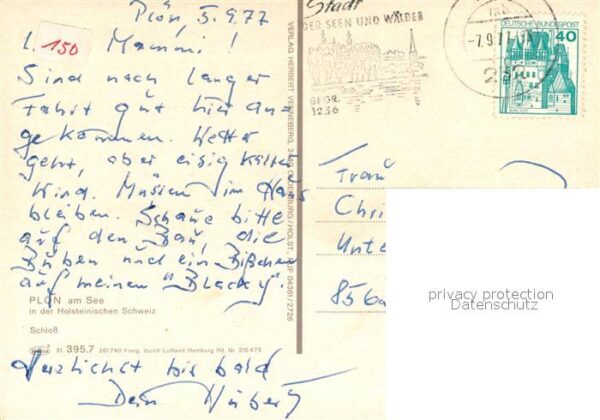 Plön, 5.9.77
l. Mammi!
150
Sind nach langer
Fahrt gut hier an-
gekommen. Wetter
geht, aber eisig kalter
Wind. Müssen im Haus
bleiben. Schaue bitte
auf den Bau, die
Buben und ein Bißchen
auf meinen "Blacky".
PLÖN am See
in der Holsteinischen Schweiz
Schloß
31. 395.7 261740 Freig. durch Luftamt Hamburg lfd. Nr. 215473
Herzlichst bis bald
Dein Hubert
VERLAG HERBERT VENNEBERG, 2440 OLDENBURG/HOLST. RUF 04361/2726
Stadt
DER SEEN UND WÄLDER
BEGR.
1236
-7.9.77
DEUTSCHE BUNDESPOST
40
Frau
Chri
Unte
856
privacy protection
Datenschutz